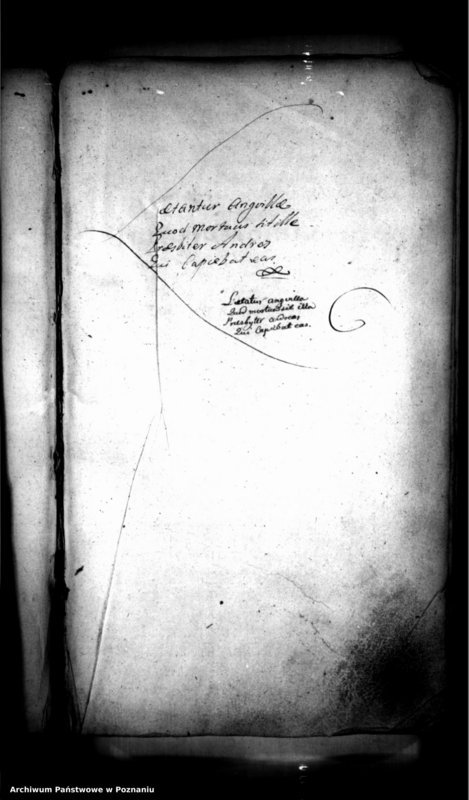 Lætantur Angvillæ
Quod mortuus sit ille
Præsbiter Andreas
Qui Capiebat eas.
Lætatur angvilla
Quod mortuus sit illa
Presbyter andreas
Qui Capiebat eas.
Archiwum Państwowe w Poznaniu